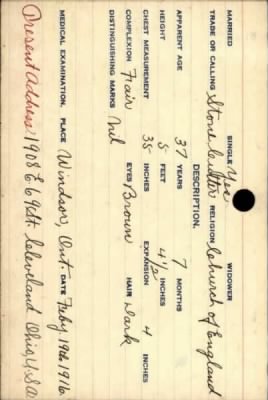 MARRIED Yes SINGLE WIDOWER
TRADE OR CALLING Stone Cutter RELIGION Church of England
DESCRIPTION.
APPARENT AGE 37 YEARS 7 MONTHS
HEIGHT 5 FEET 4½ INCHES
CHEST MEASUREMENT 35 INCHES EXPANSION 4 INCHES
COMPLEXION Fair EYES Brown HAIR Dark
DISTINGUISHING MARKS Nil
MEDICAL EXAMINATION. PLACE Windsor, Ont. DATE Feby 19th 1916.
Present Address: 1908 E. 69th St. Cleveland Ohio, U.S.A.